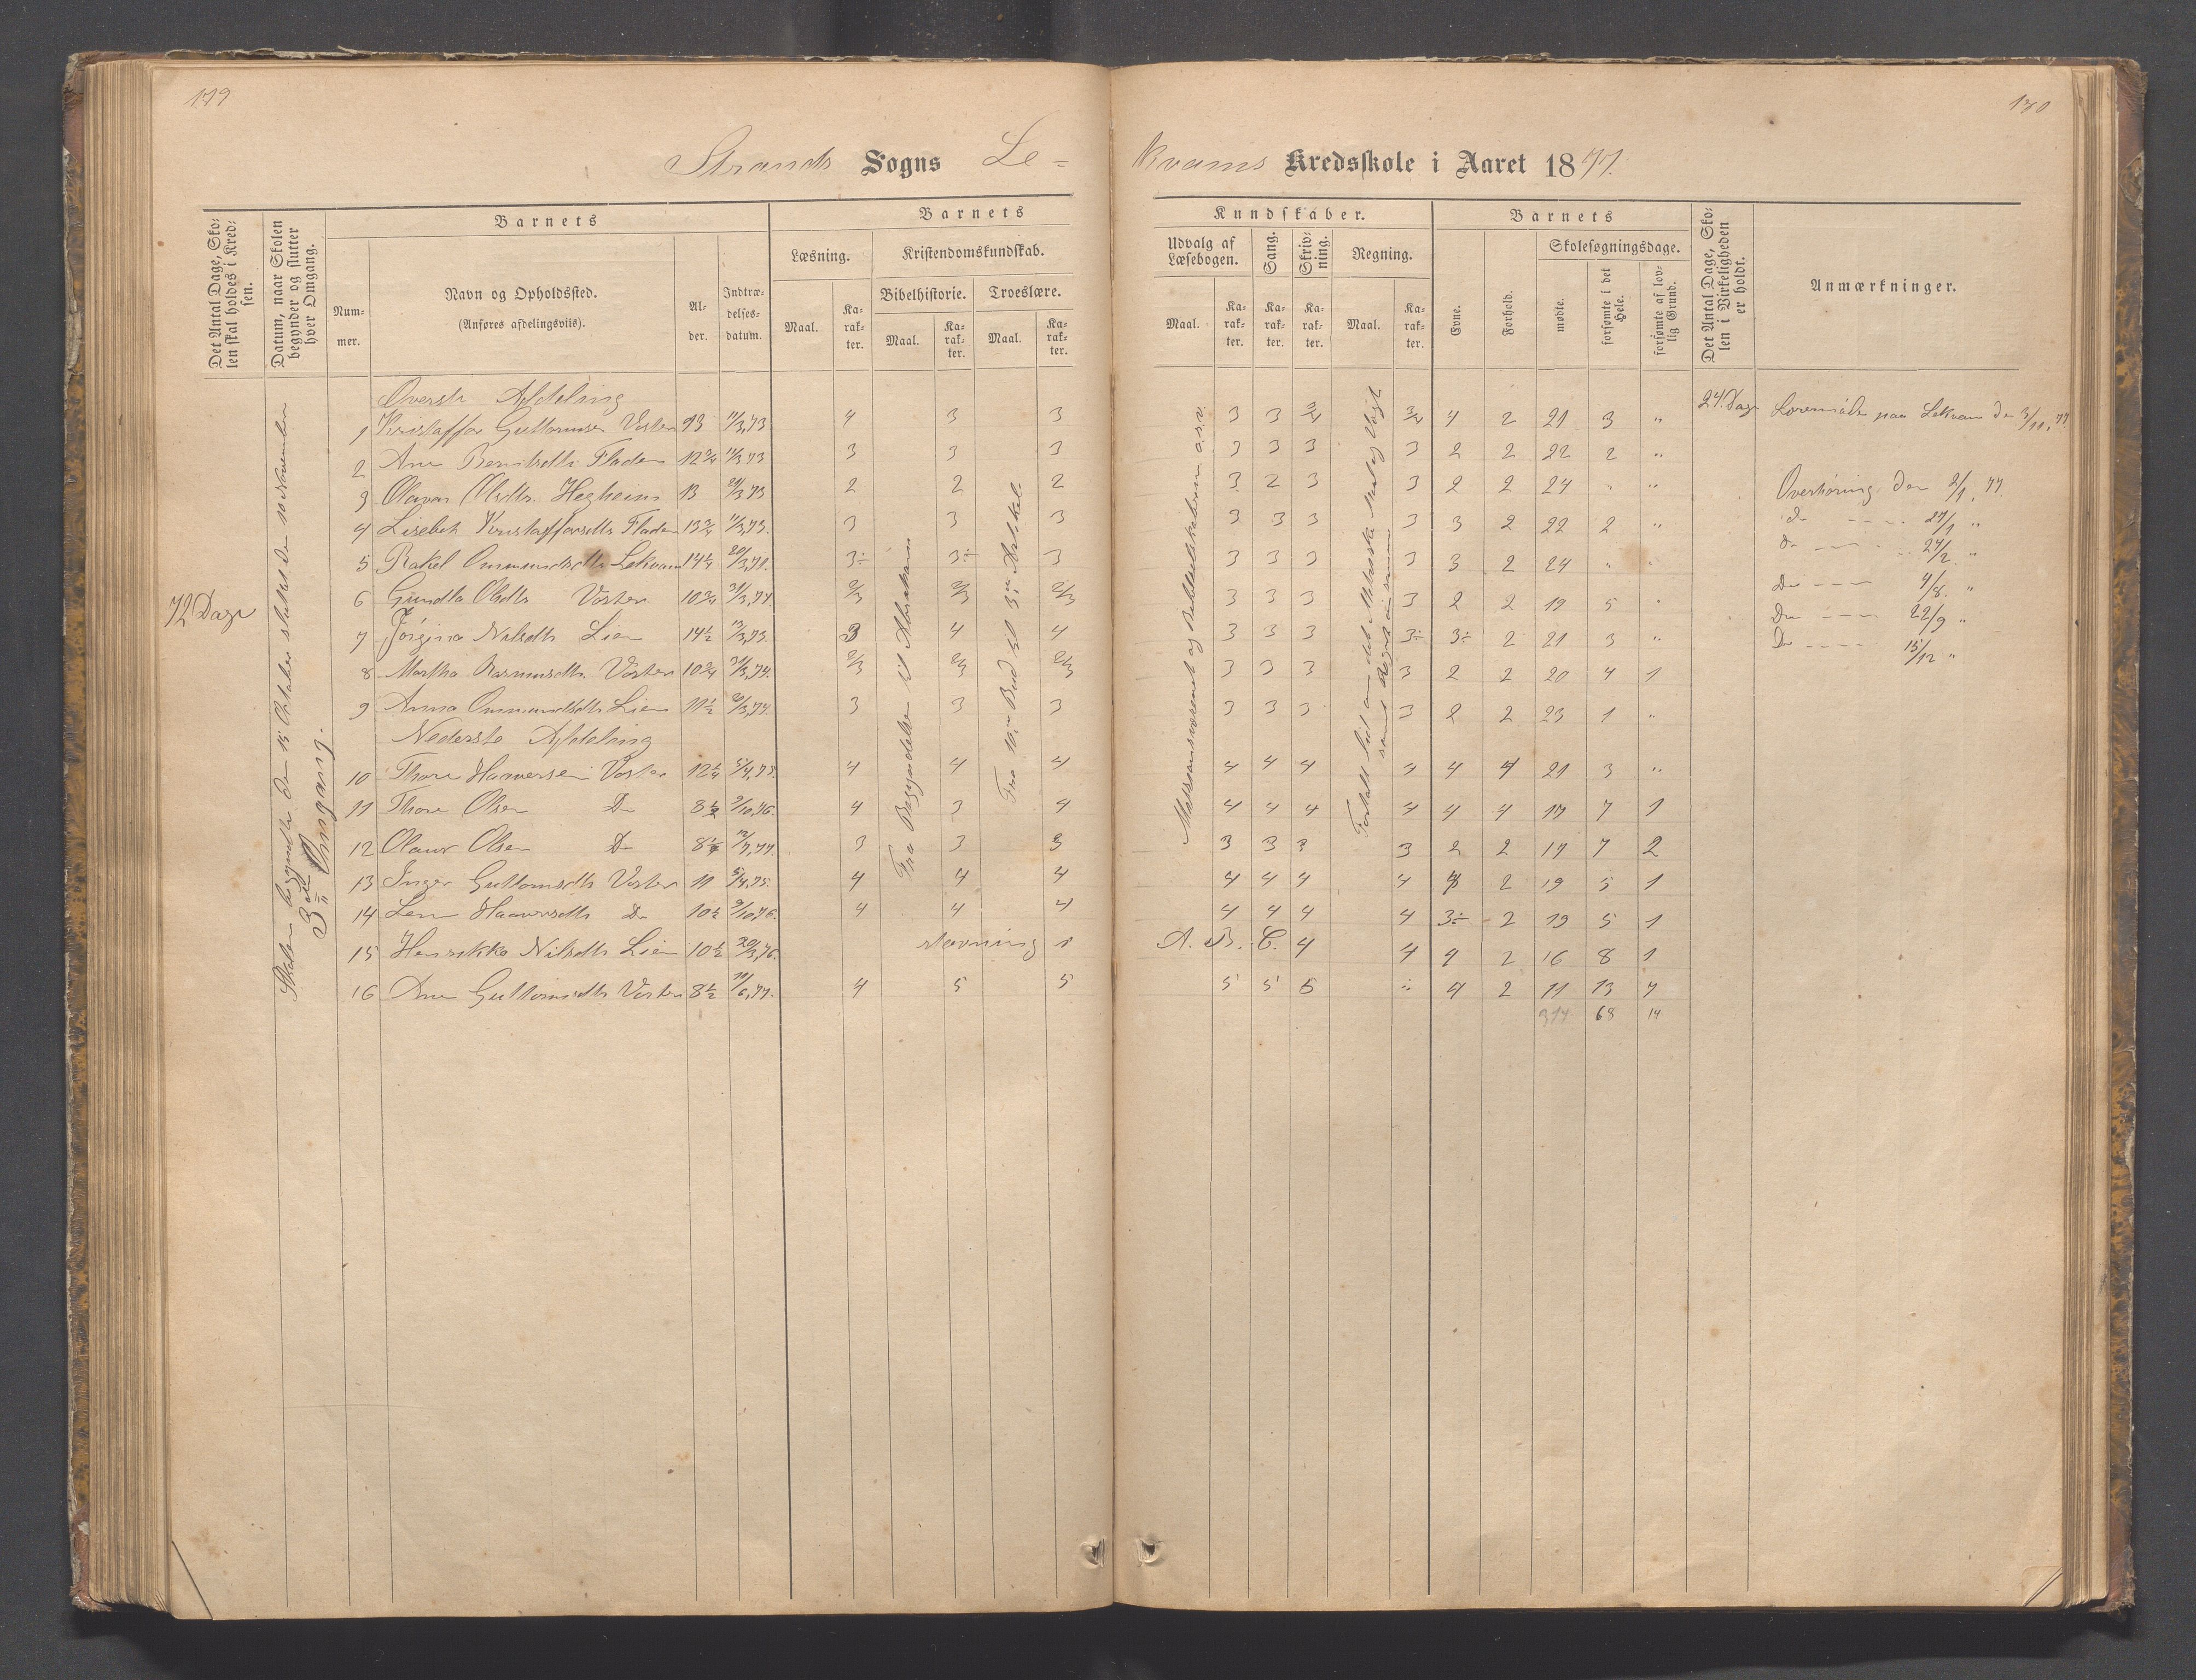 179
170
Strands Sogns Le-
kvams Kredsskole i Aaret 1877.
Det Antal Dage, Skolen skal holdes i Kredsen.
Datum, naar Skolen begynder og slutter hver Omgang.
Barnets
Nummer.
Navn og Opholdssted.
(Anføres afdelingsviis).
Alder.
Indtrædelsesdatum.
Barnets
Læsning.
Kristendomskundskab.
Bibelhistorie.
Troeslære.
Maal.
Karakter.
Maal.
Karakter.
Maal.
Karakter.
Kundskaber.
Udvalg af Læsebogen.
Sang.
Skrivning.
Regning.
Maal.
Karakter.
Karakter.
Karakter.
Maal.
Karakter.
Barnets
Evne.
Forhold.
Skolesøgningsdage.
mødte.
forsømte i det Hele.
forsømte af lovlig Grund.
Det Antal Dage, Skolen i Virkeligheden er holdt.
Anmærkninger.
72 Dage
Skolen begyndte den 15 Oktober sluttet den 10 November
3die Omgang.
Fra Begyndelsen til Abraham
Fra 10. Bud til 3. Artikel
24. Dage
Øverste Afdeling
1 Kristaffer Guttormsen Voster 13 11/3,73 4 3 3 3 3 3/4 3/4 4 2 21 3 "
2 Ane Berntsdtr Fladen 12 3/4 11/3 73 3 3 3 3 3 3 2 2 22 2 "
3 Olava Olsdtr. Hegheim 13 24/3 73 2 2 2 3 2 3 3 2 2 24 " "
4 Lisebet Kristaffersdtr Fladen 13 3/4 11/3,73. 3 3 3 3 3 3 3 3 2 22 2 "
5 Rakel Ommundsdtr Lekvam 14 1/4 3÷ 3÷ 3 3 3 3 3 3 2 24 " "
6 Gundla Olsdtr Voster 10 3/4 31/3,74. 2/3 2/3 2/3 3 3 3 3 2 2 19 5 "
7 Jørgine Nilsdtr Lien 14 1/2 13/3,73. 3 4 4 3 3 3 3÷ 3÷ 2 21 3 "
8 Martha Rasmusdtr. Voster 10 3/4 31/3,74. 2/3 2/3 2/3 3 3 3 3 2 2 20 4 1
9 Anna Ommundsdtr Lien 11 1/2 3 3 3 3 3 3 3 2 2 23 1 "
Nederste Afdeling
10 Thore Haaversen Voster 12 1/4 5/4,75. 4 4 4 4 4 4 4 4 4 21 3 "
11 Thore Olsen Do 8 1/2 9/10,76. 4 3 4 4 4 4 4 4 4 17 7 1
12 Olaus Olsen Do 12/7,77. 3 3 3 3 3 3 3 2 2 17 7 2
13 Inger Guttormsdtr Voster 11 5/4,75. 4 4 4 4 4 4 4 4 2 19 5 1
14 Lene Haaversdtr Do 10 1/2 9/10,76. 4 4 4 4 4 4 4 3÷ 2 19 5 1
15 Henrikke Nilsdtr Lien 10 1/2 20/3,76. stavning i A. B. C. 4 4 4 2 16 8 1
16 Ane Guttormsdtr Voster 8 1/2 11/6,77. 4 5 5 5 5 5 " 4 2 11 13 7
314 68 14
Lærermøde paa Lekvam den 3/11, 77
Overhøring den 2/1, 77.
do ---- 27/1 "
do ---- 24/2 "
Do ---- 4/8. "
Do ---- 22/9 "
Do ---- 15/12 "